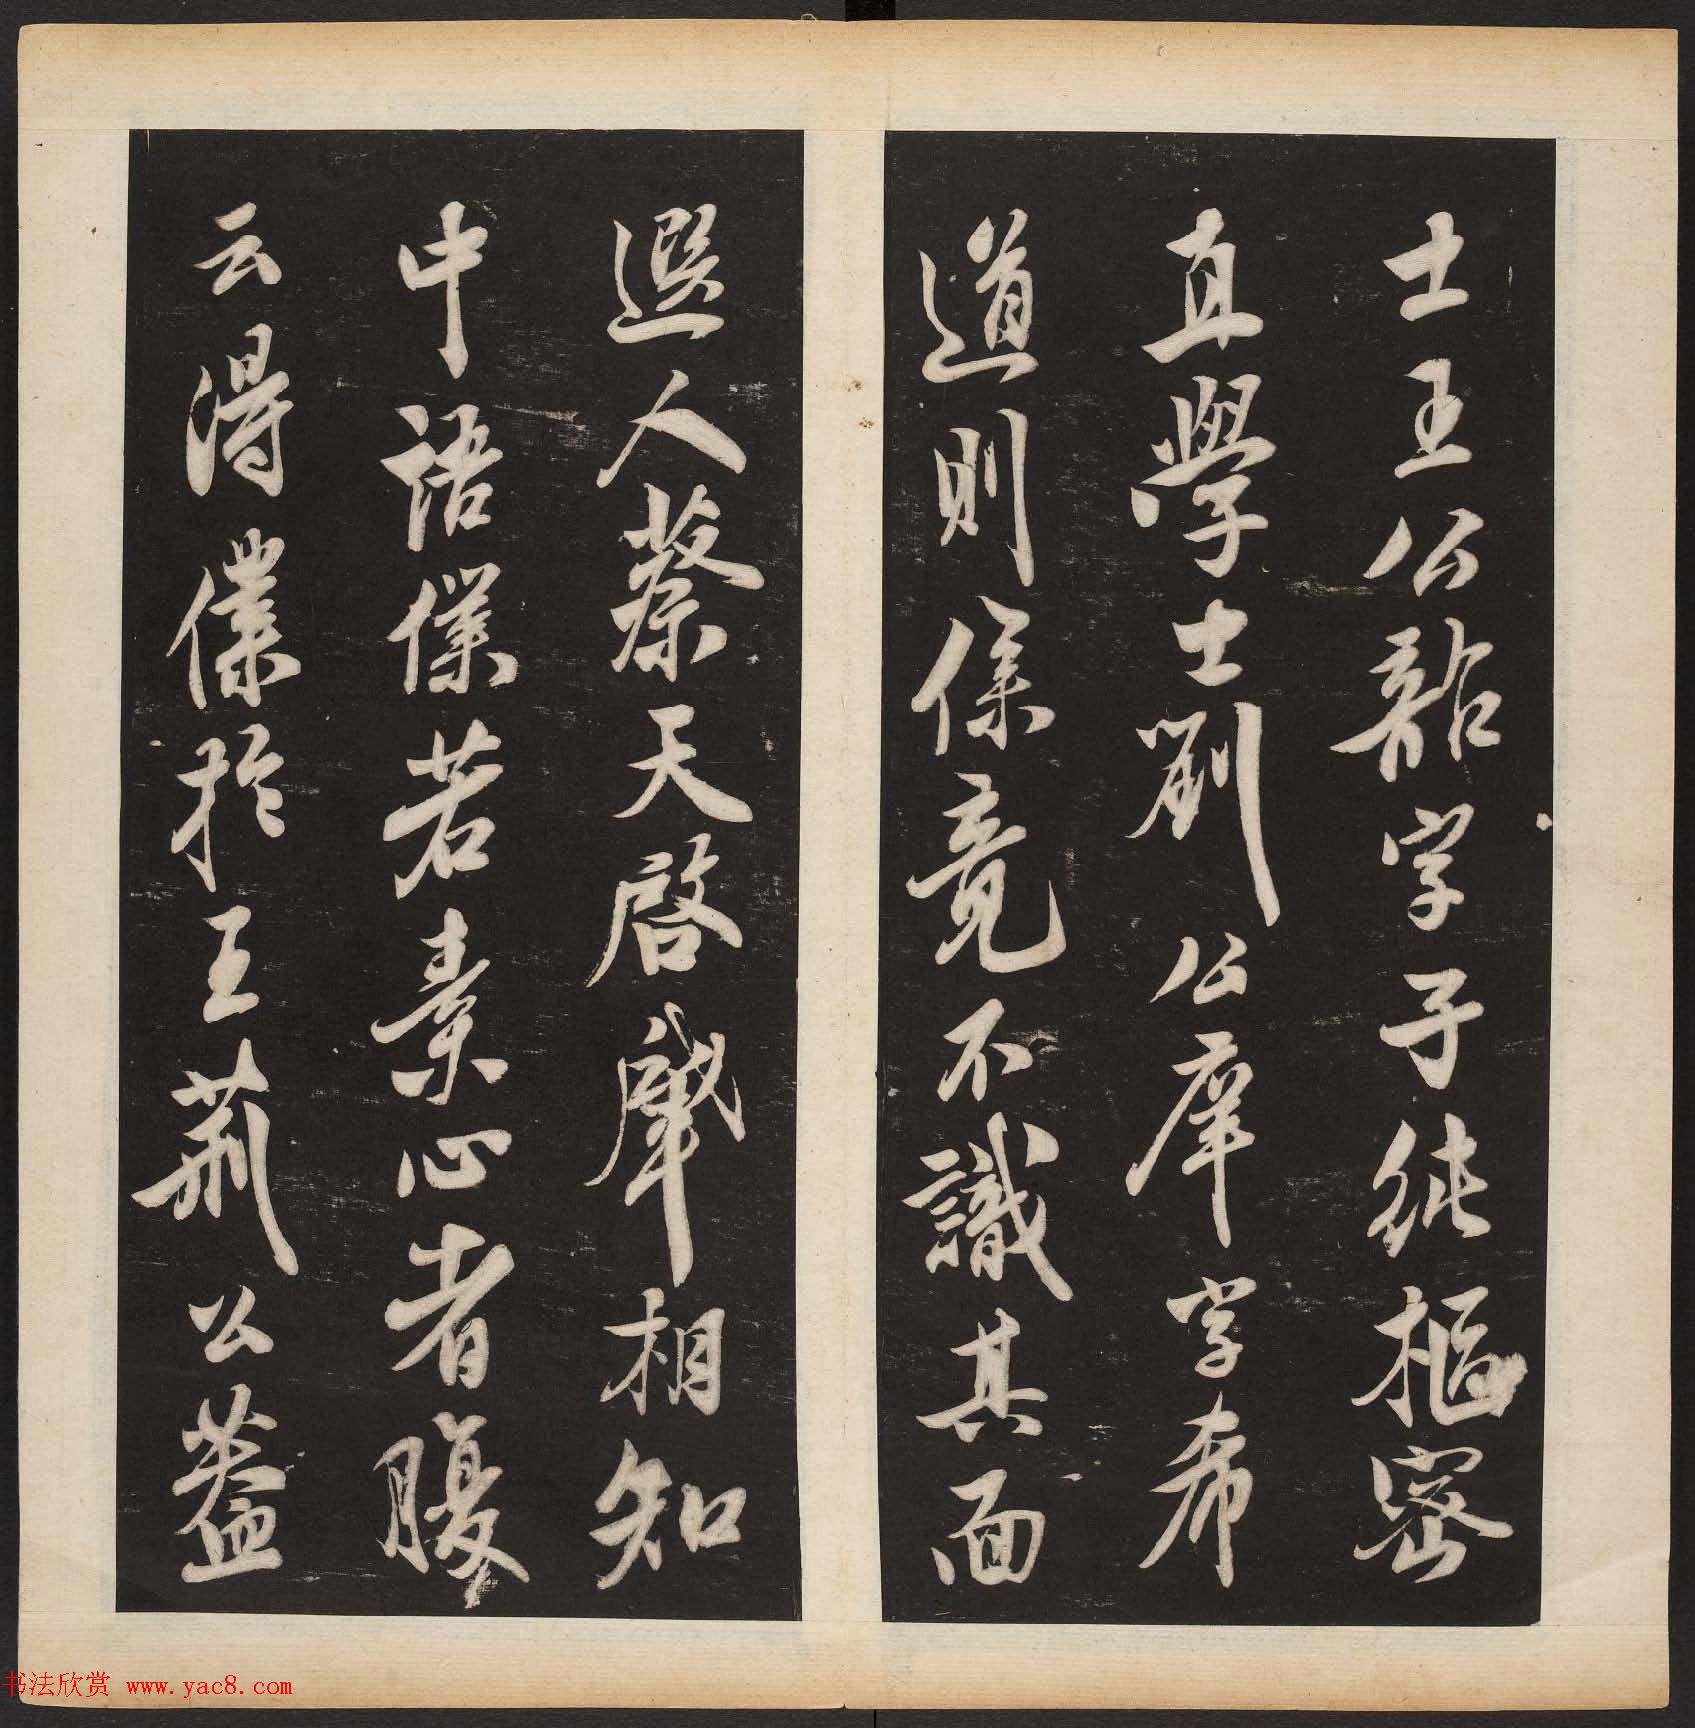 士王公韶字子純樞密
直學士劉公庠字希
道則僕竟不識其面
遐人蔡天啓肇相知
中語僕若素心者腹
云得僕於王荊公蓋
书法欣赏 www.yac8.com